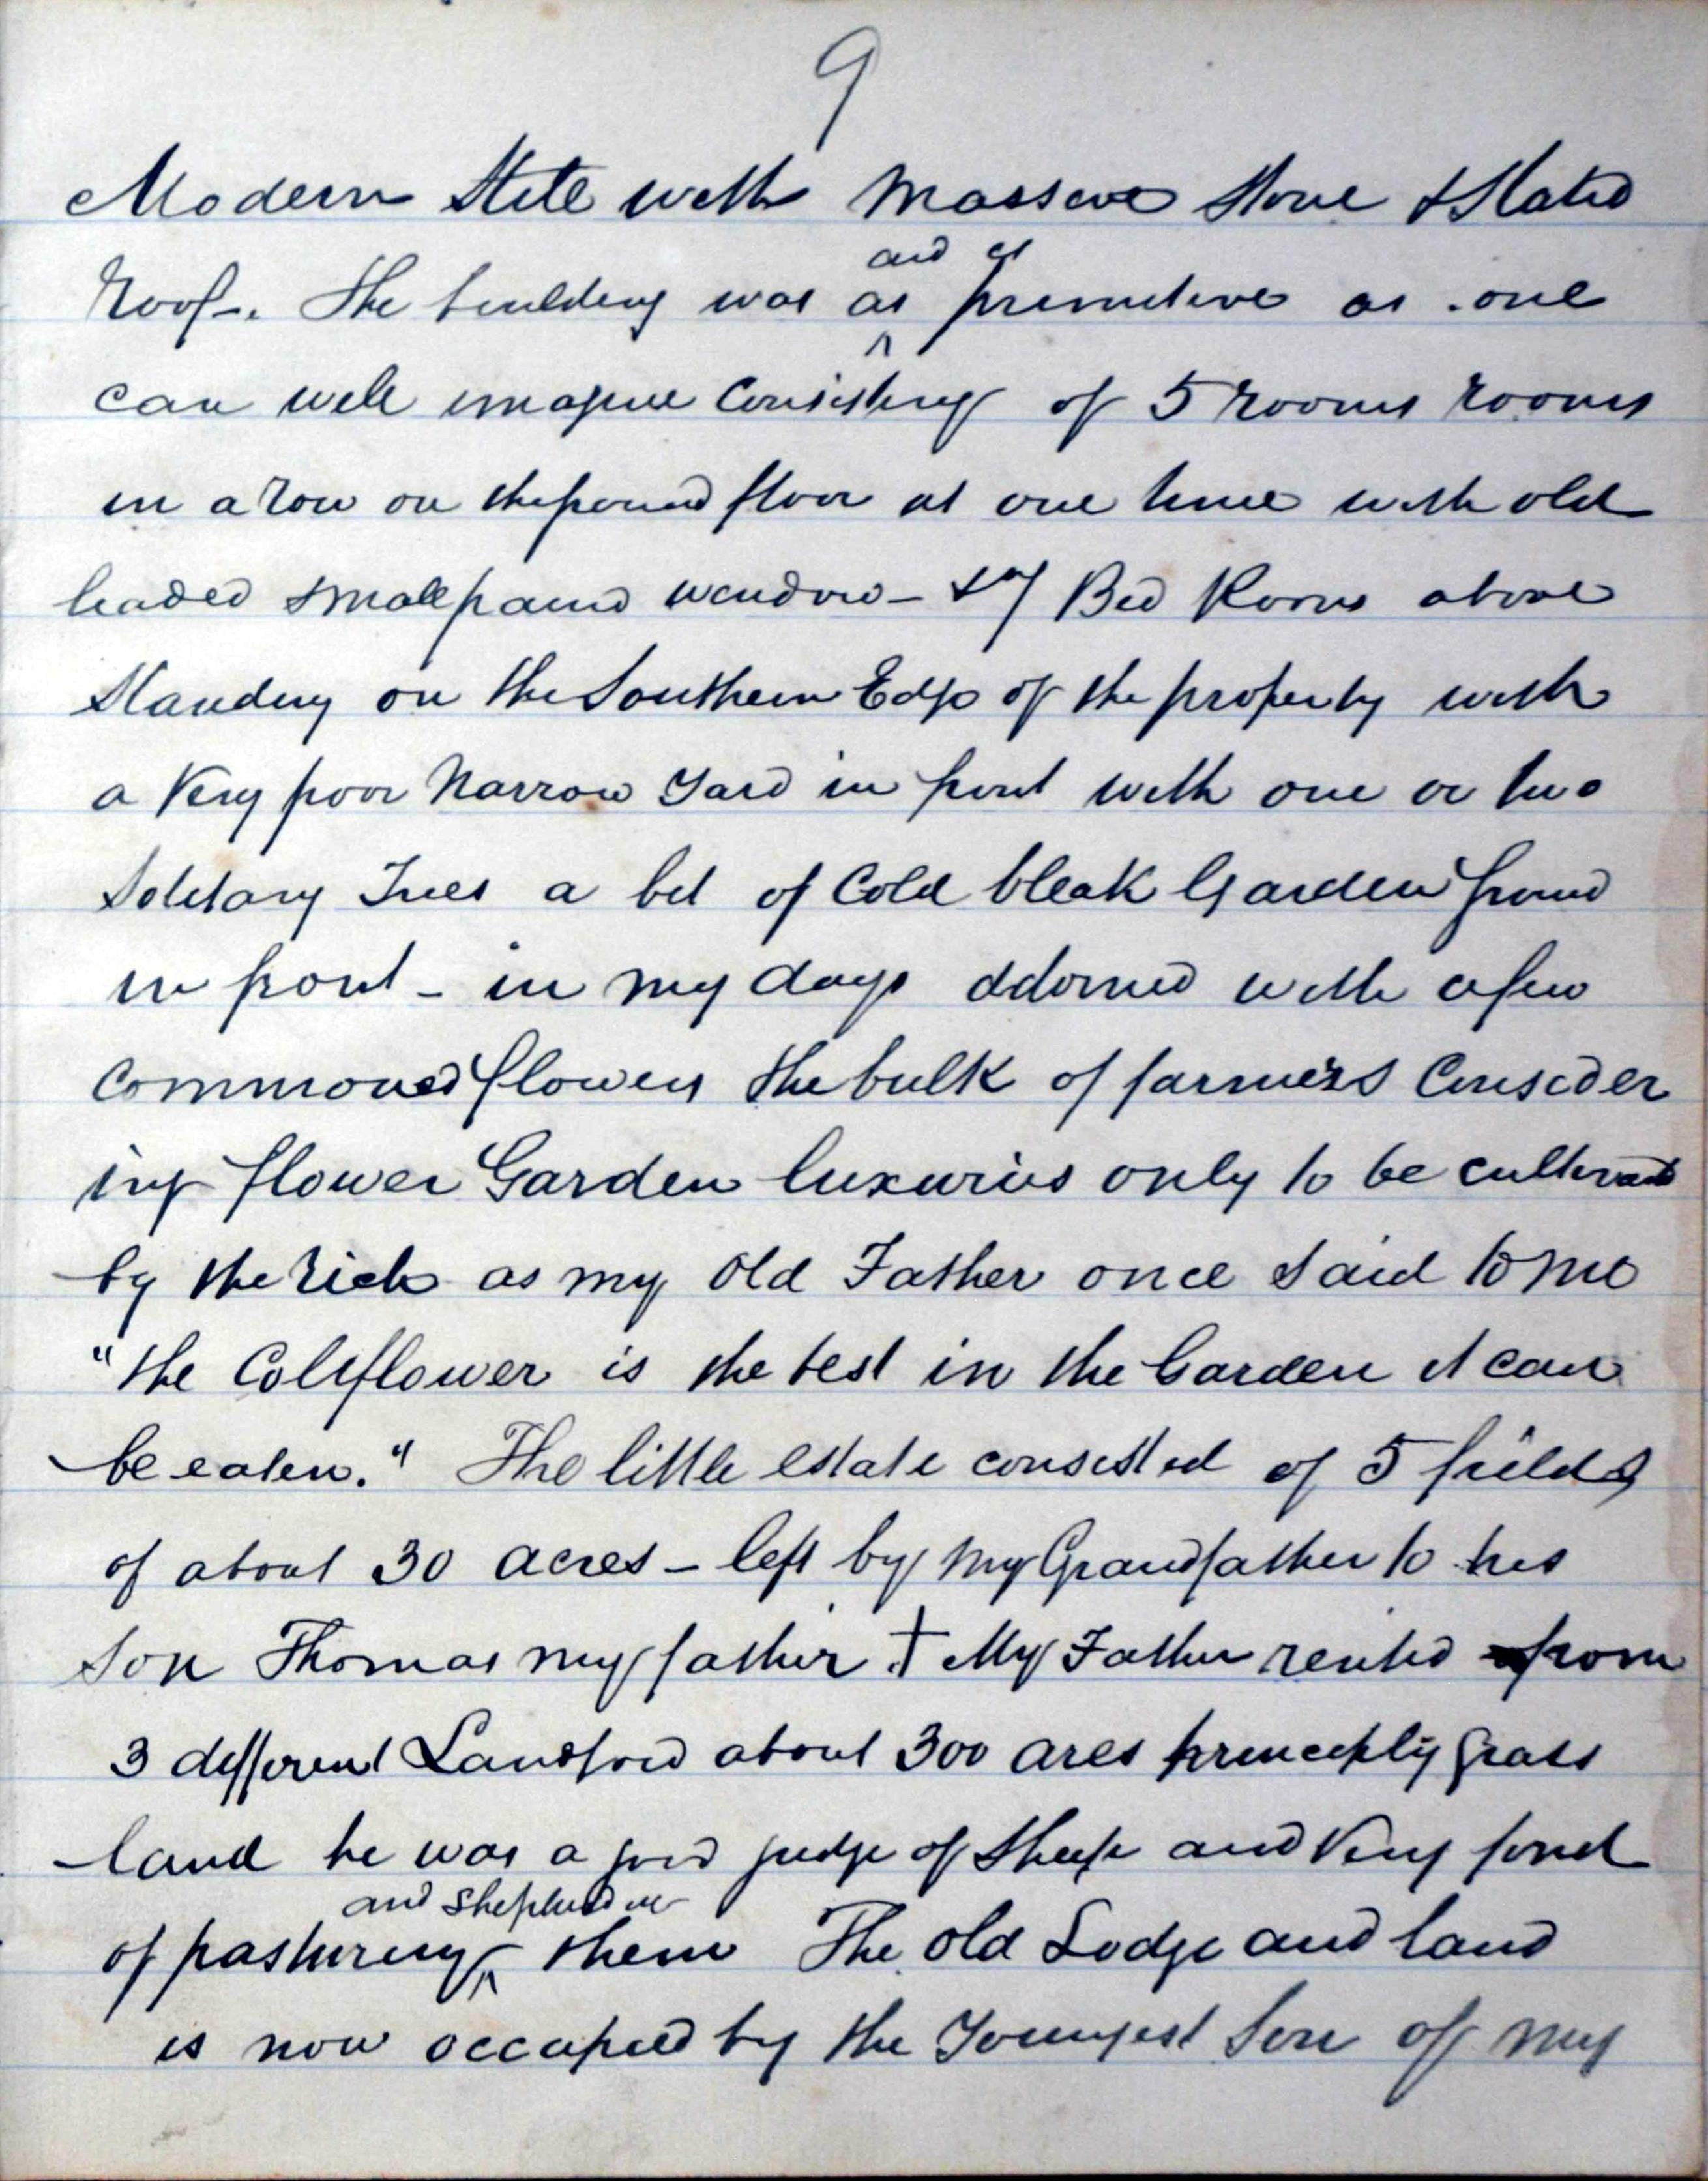 9
Modern Stile with Massive Stone & Slated
Roof-. The building was as primitive as one
and is
can well imagine Consisting of 5 rooms rooms
in a Row on the ground floor at one time with old
leaded small paned window - & Bed Rooms above
Standing on the Southern Edge of the property with
a Very poor Narrow Yard in front with one or two
Solitary Trees a bit of Cold bleak Garden ground
in front - in my days adorned with a few
Commoned flowers the bulk of farmers Consider
ing flower Garden luxuries only to be cultivated
by the Rich as my Old Father once Said to me
"the Coliflower is the best in the Garden it can
be eaten." The little estate consisted of 5 fields
of about 30 acres - left by My Grandfather to his
Son Thomas my father & My Father rented from
3 different Landlord about 300 acres princeply Grass
land he was a good judge of Sheep and Very fond
and Shepherding
of pasturing them The Old Lodge and land
is now occupied by the Youngest Son of my